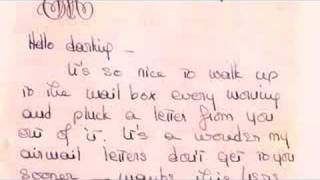 Hello darling -
It's so nice to walk up
to the mail box every morning
and pluck a letter from you
out of it. It's a wonder my
airmail letters don't get to you
sooner - maybe it is